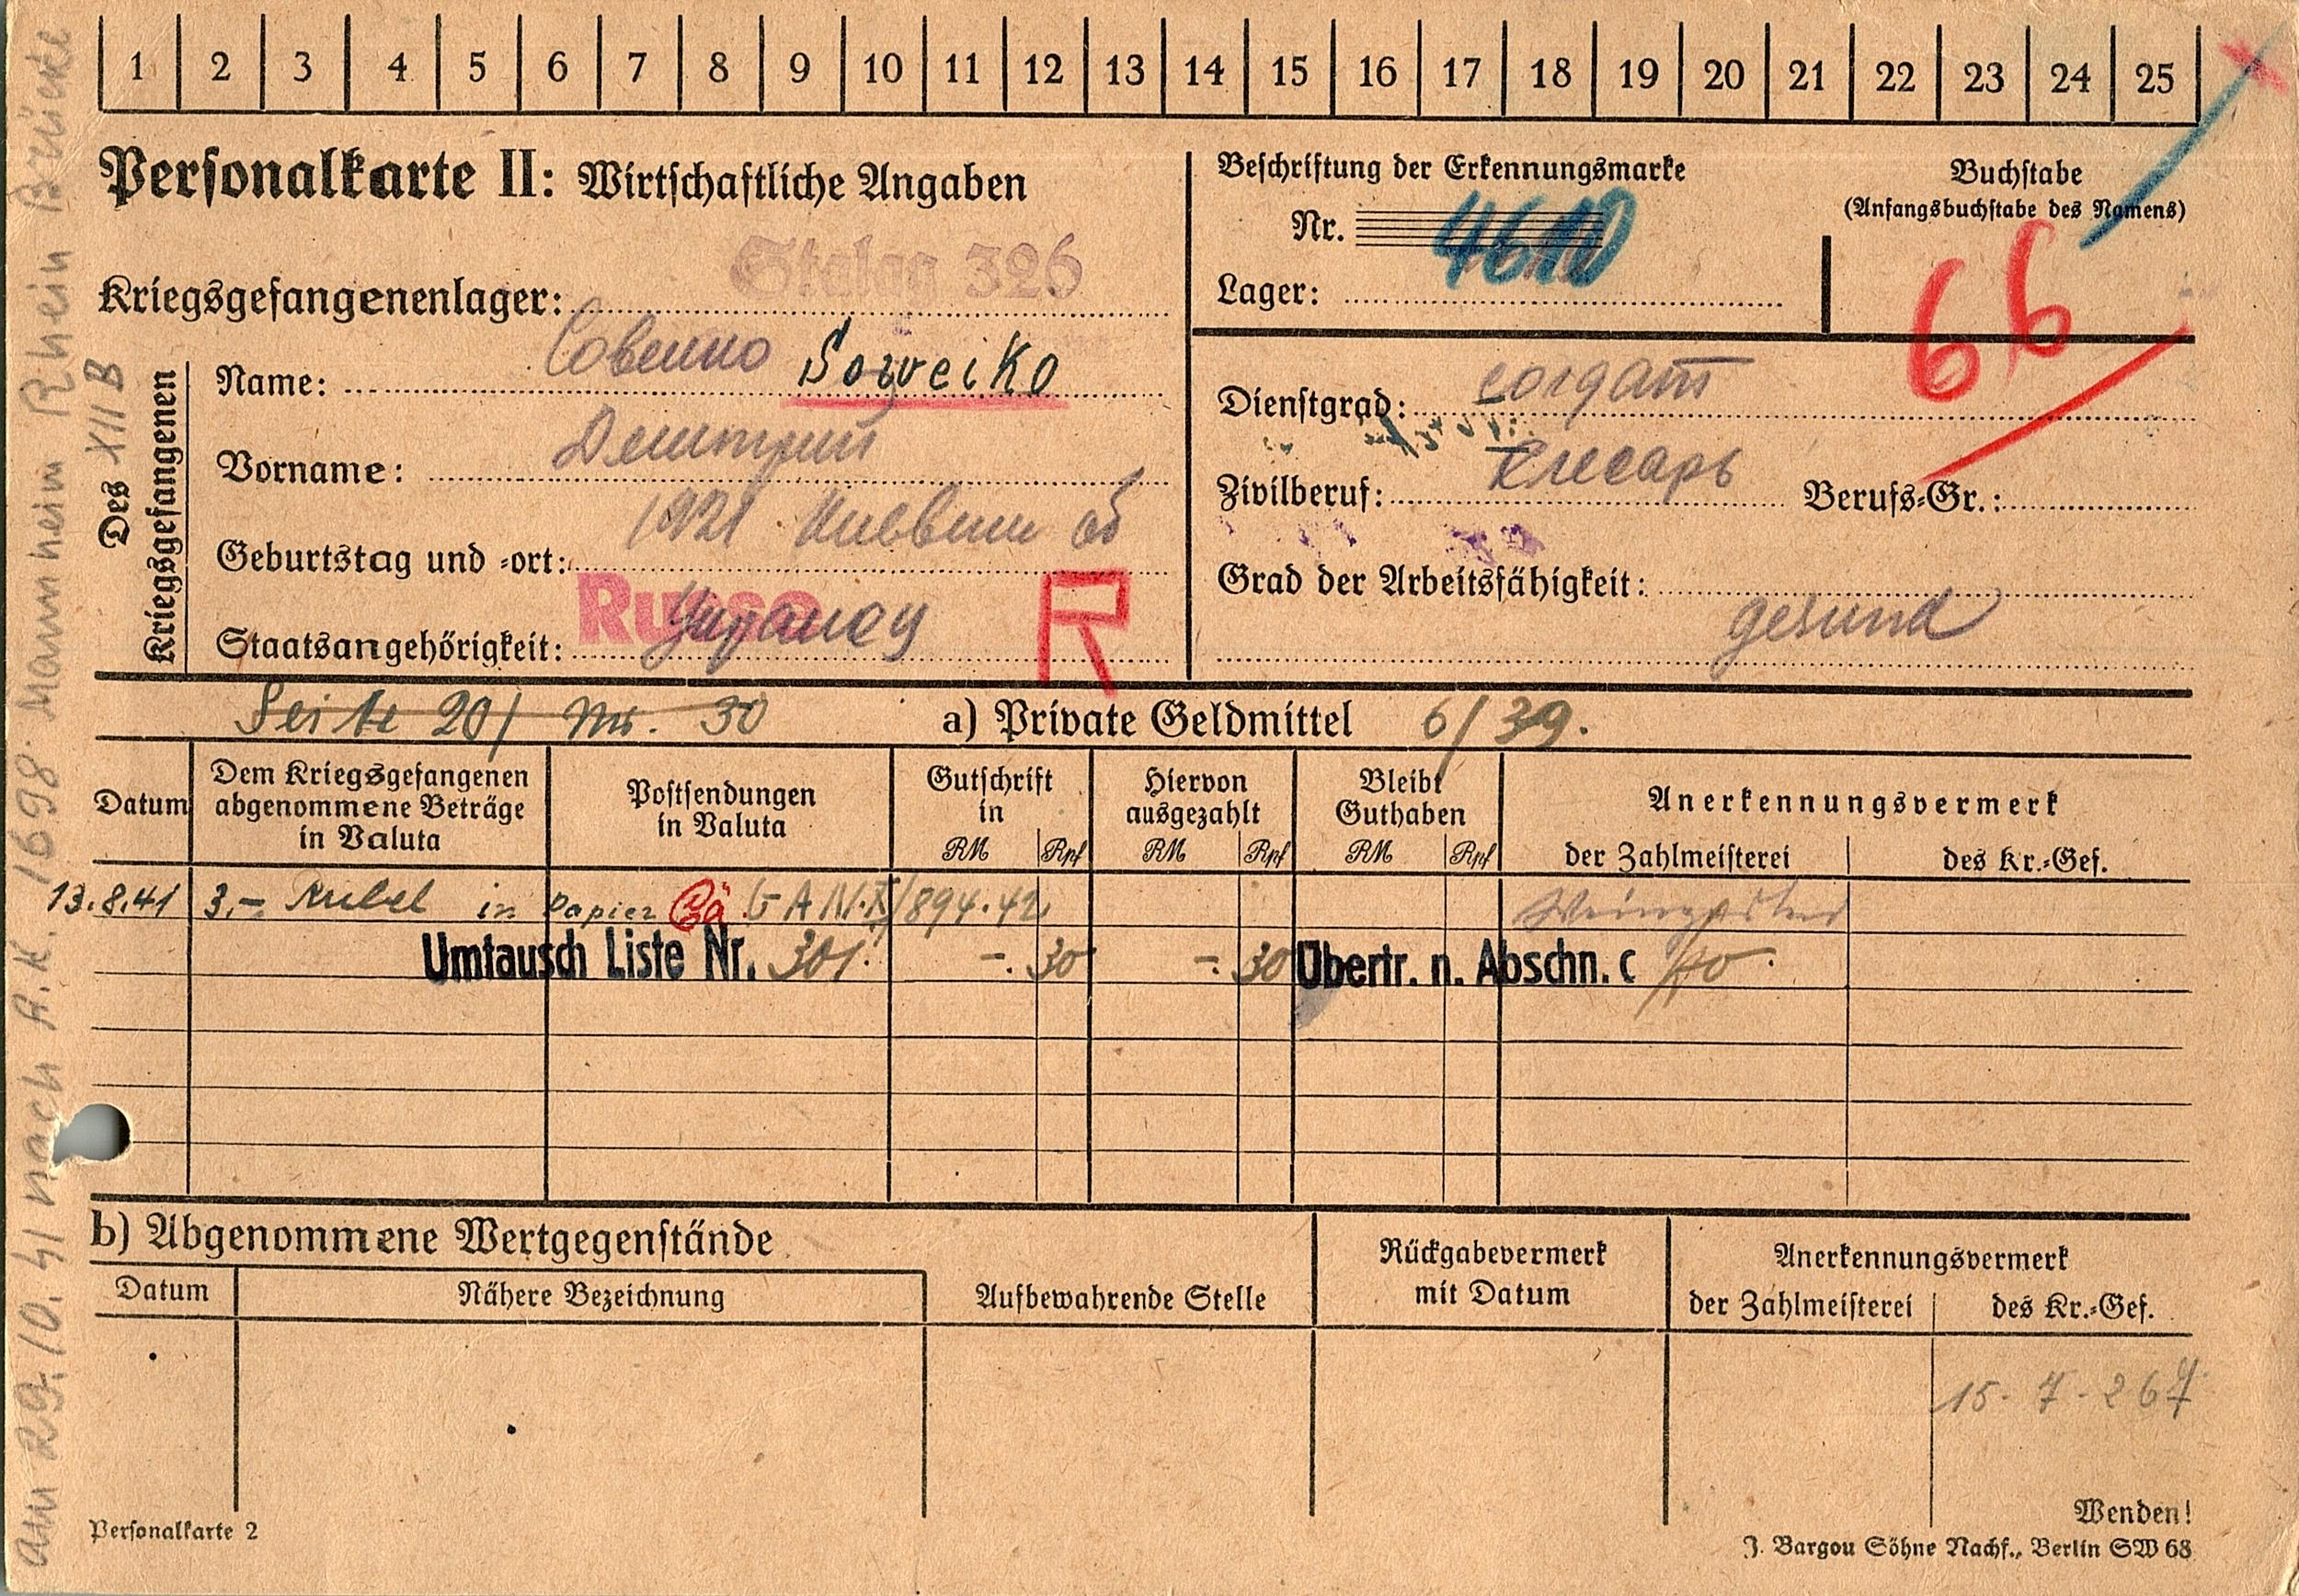 1 2 3 4 5 6 7 8 9 10 11 12 13 14 15 16 17 18 19 20 21 22 23 24 25
Personalkarte II: Wirtschaftliche Angaben
Beschriftung der Erkennungsmarke
Nr. 4610
Lager:
Buchstabe
(Anfangsbuchstabe des Namens)
66
Kriegsgefangenenlager: Stalag 326
Des Kriegsgefangenen
XII B
Name: Совейко Soweiko
Vorname: Дмитрий
Geburtstag und -ort: 1921 Киевский об
Staatsangehörigkeit: Russe R
Dienstgrad: солдат
Zivilberuf: слесарь Berufs-Gr.:
Grad der Arbeitsfähigkeit:
gesund
Seite 20/ Nr. 30 a) Private Geldmittel 6/39.
Datum
Dem Kriegsgefangenen abgenommene Beträge in Valuta
Postsendungen in Valuta
Gutschrift in
RM Rpf
Hiervon ausgezahlt
RM Rpf
Bleibt Guthaben
RM Rpf
Anerkennungsvermerk
der Zahlmeisterei des Kr.-Gef.
13.8.41 3.- Rubel in Papier 894.42
Umtausch Liste Nr. 301. -. 30 -. 30 Übertr. n. Abschn. c
b) Abgenommene Wertgegenstände
Datum
Nähere Bezeichnung
Aufbewahrende Stelle
Rückgabevermerk mit Datum
Anerkennungsvermerk
der Zahlmeisterei des Kr.-Gef.
15. 7. 267
Personalkarte 2
Wenden!
J. Bargou Söhne Nachf., Berlin SW 68
am 29.10.41 nach A.K. 1698 Mannheim Rhein Brücke